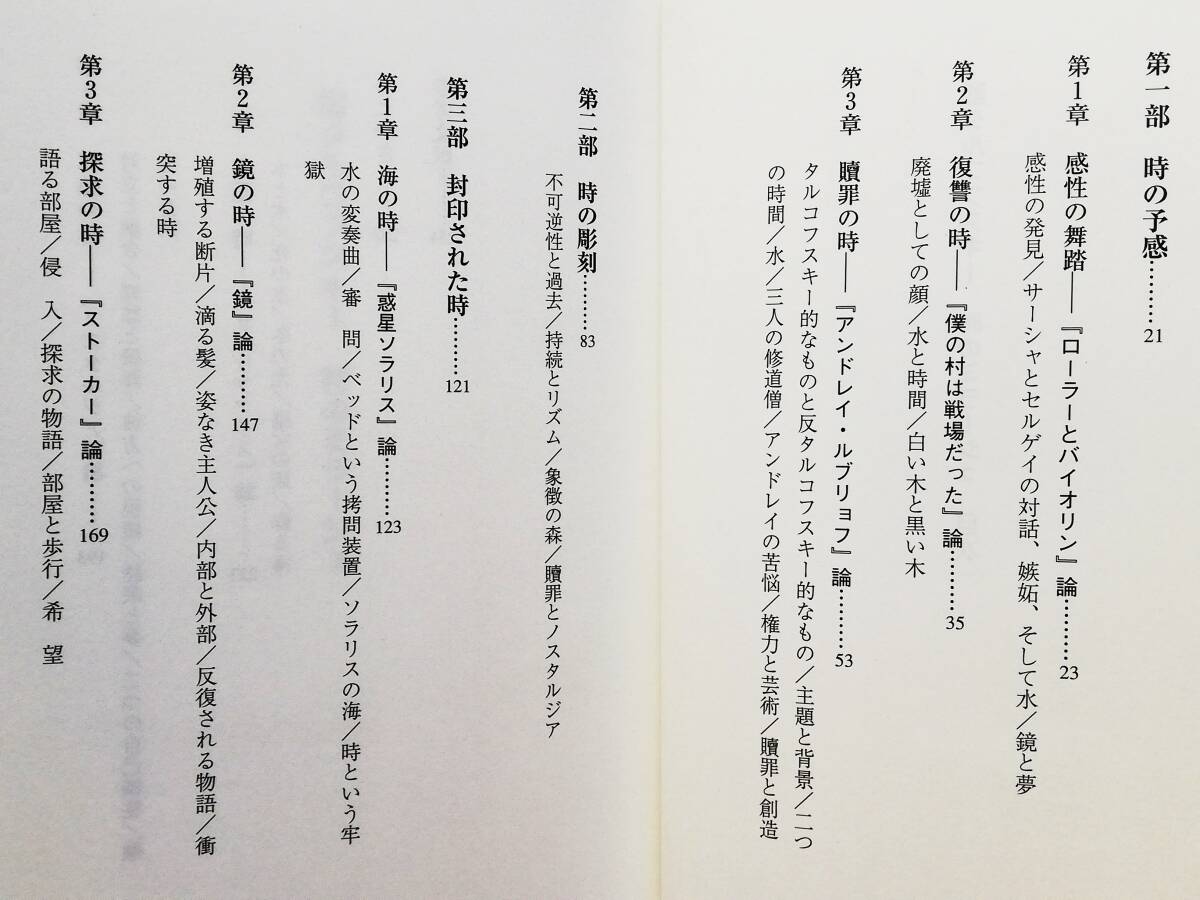 第一部　時の予感…………21
第1章　感性の舞踏――『ローラーとバイオリン』論…………23
感性の発見／サーシャとセルゲイの対話、嫉妬、そして水／鏡と夢
第2章　復讐の時――『僕の村は戦場だった』論…………35
廃墟としての顔／水と時間／白い木と黒い木
第3章　贖罪の時――『アンドレイ・ルブリョフ』論…………53
タルコフスキー的なものと反タルコフスキー的なもの／主題と背景／二つ
の時間／水／三人の修道僧／アンドレイの苦悩／権力と芸術／贖罪と創造
第二部　時の彫刻…………83
不可逆性と過去／持続とリズム／象徴の森／贖罪とノスタルジア
第三部　封印された時…………121
第1章　海の時――『惑星ソラリス』論…………123
水の変奏曲／審　問／ベッドという拷問装置／ソラリスの海／時という牢
獄
第2章　鏡の時――『鏡』論…………147
増殖する断片／滴る髪／姿なき主人公／内部と外部／反復される物語／衝
突する時
第3章　探求の時――『ストーカー』論…………169
語る部屋／侵　入／探求の物語／部屋と歩行／希　望